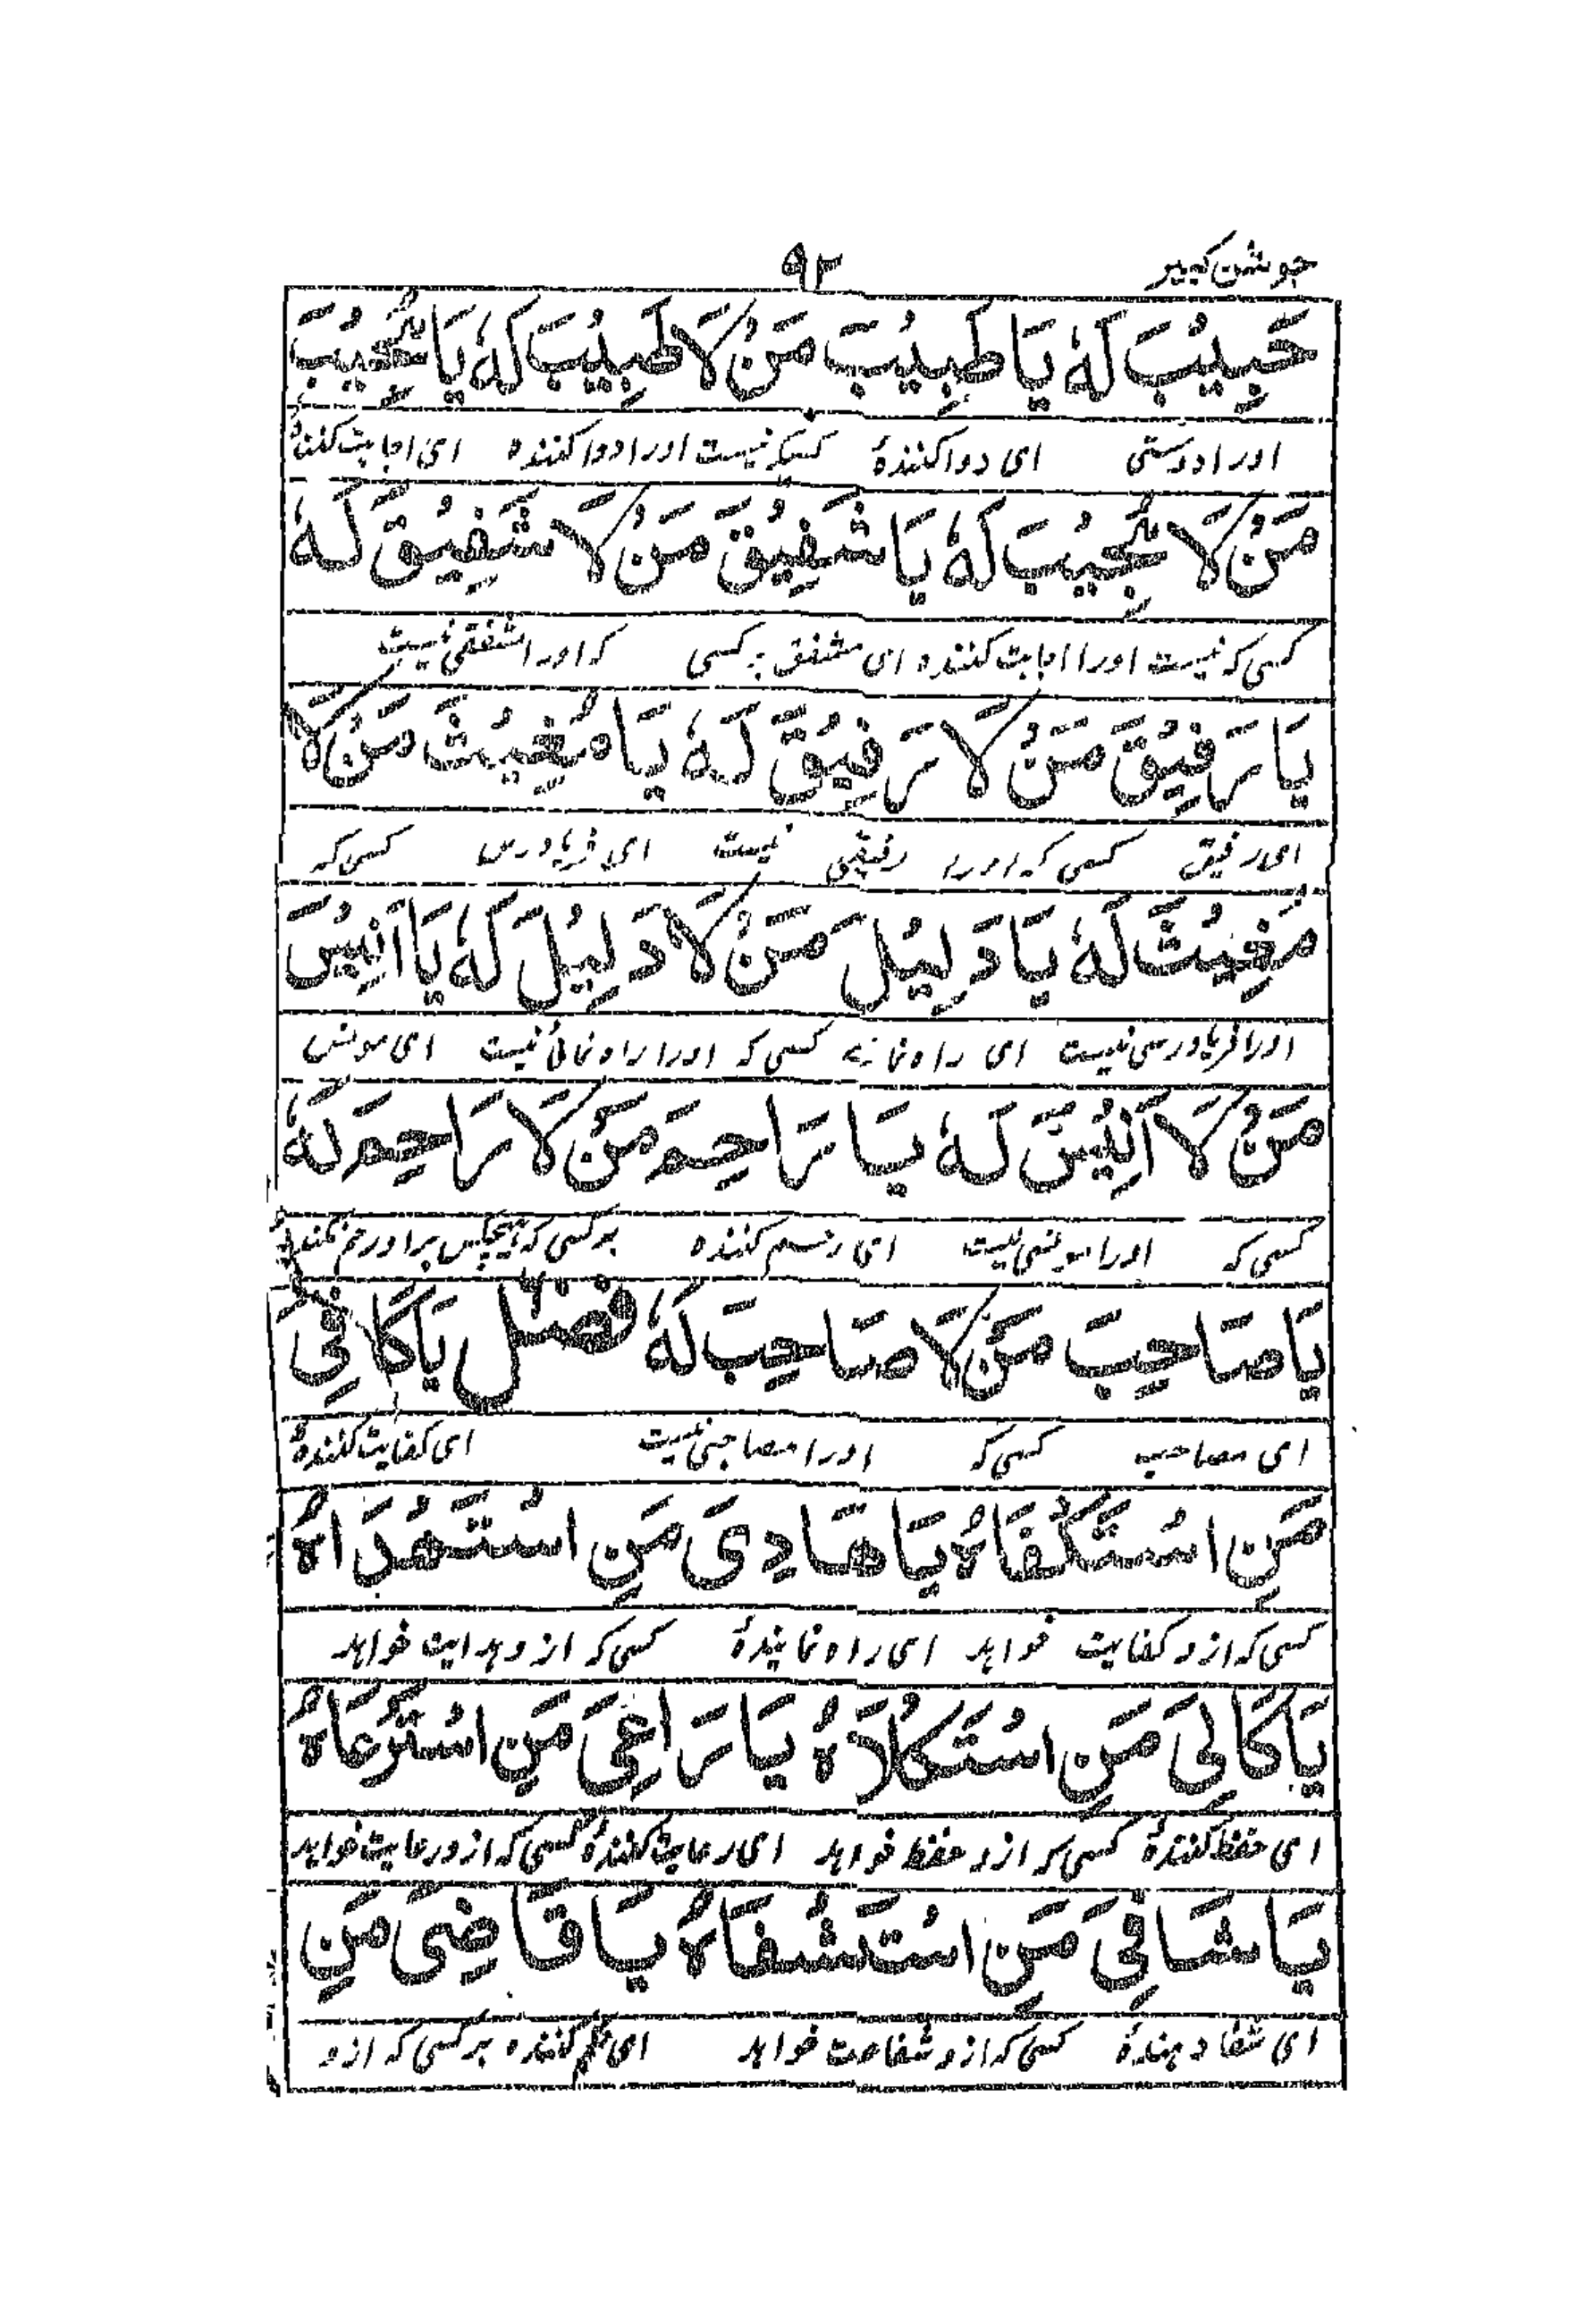 جوشن کبیر
۹۲
حَبِیْبَ لَهٗ یَا طَبِیْبَ مَنْ لَا طَبِیْبَ لَهٗ یَا مُجِیْبَ
اورا دوستی ای دوا کنندهٔ کسیکه نیست اورا دوا کننده ای اجابت کنندهٔ
مَنْ لَا مُجِیْبَ لَهٗ یَا شَفِیْقَ مَنْ لَا شَفِیْقَ لَهٗ
کسی که نیست اورا اجابت کننده ای مشفق بر کسی که اورا شفقی نیست
یَا رَفِیْقَ مَنْ لَا رَفِیْقَ لَهٗ یَا مُغِیْثَ مَنْ لَا
ای رفیق کسی که اورا رفیقی نیست ای فریادرس کسی که
مُغِیْثَ لَهٗ یَا دَلِیْلَ مَنْ لَا دَلِیْلَ لَهٗ یَا اَنِیْسَ
اورا فریادرسی نیست ای راه نمای کسی که اورا راه نمائی نیست ای مونس
مَنْ لَا اَنِیْسَ لَهٗ یَا رَاحِمَ مَنْ لَا رَاحِمَ لَهٗ
کسی که اورا مونسی نیست ای رحم کننده بر کسی که هیچکس بر او رحم نکند
یَا صَاحِبَ مَنْ لَا صَاحِبَ لَهٗ فصل یَا کَافِیَ
ای مصاحب کسی که اورا مصاحبی نیست ای کفایت کنندهٔ
مَنِ اسْتَکْفَاهُ یَا هَادِیَ مَنِ اسْتَهْدَاهُ
کسی که ازو کفایت خواهد ای راه نمایندهٔ کسی که ازو هدایت خواهد
یَا کَالِیَ مَنِ اسْتَکْلَاَهُ یَا رَاعِیَ مَنِ اسْتَرْعَاهُ
ای حفظ کنندهٔ کسی که ازو حفظ خواهد ای رعایت کنندهٔ کسی که ازو رعایت خواهد
یَا شَافِیَ مَنِ اسْتَشْفَاهُ یَا قَاضِیَ مَنِ
ای شفا دهندهٔ کسی که ازو شفاعت خواهد ای حکم کننده بر کسی که ازو